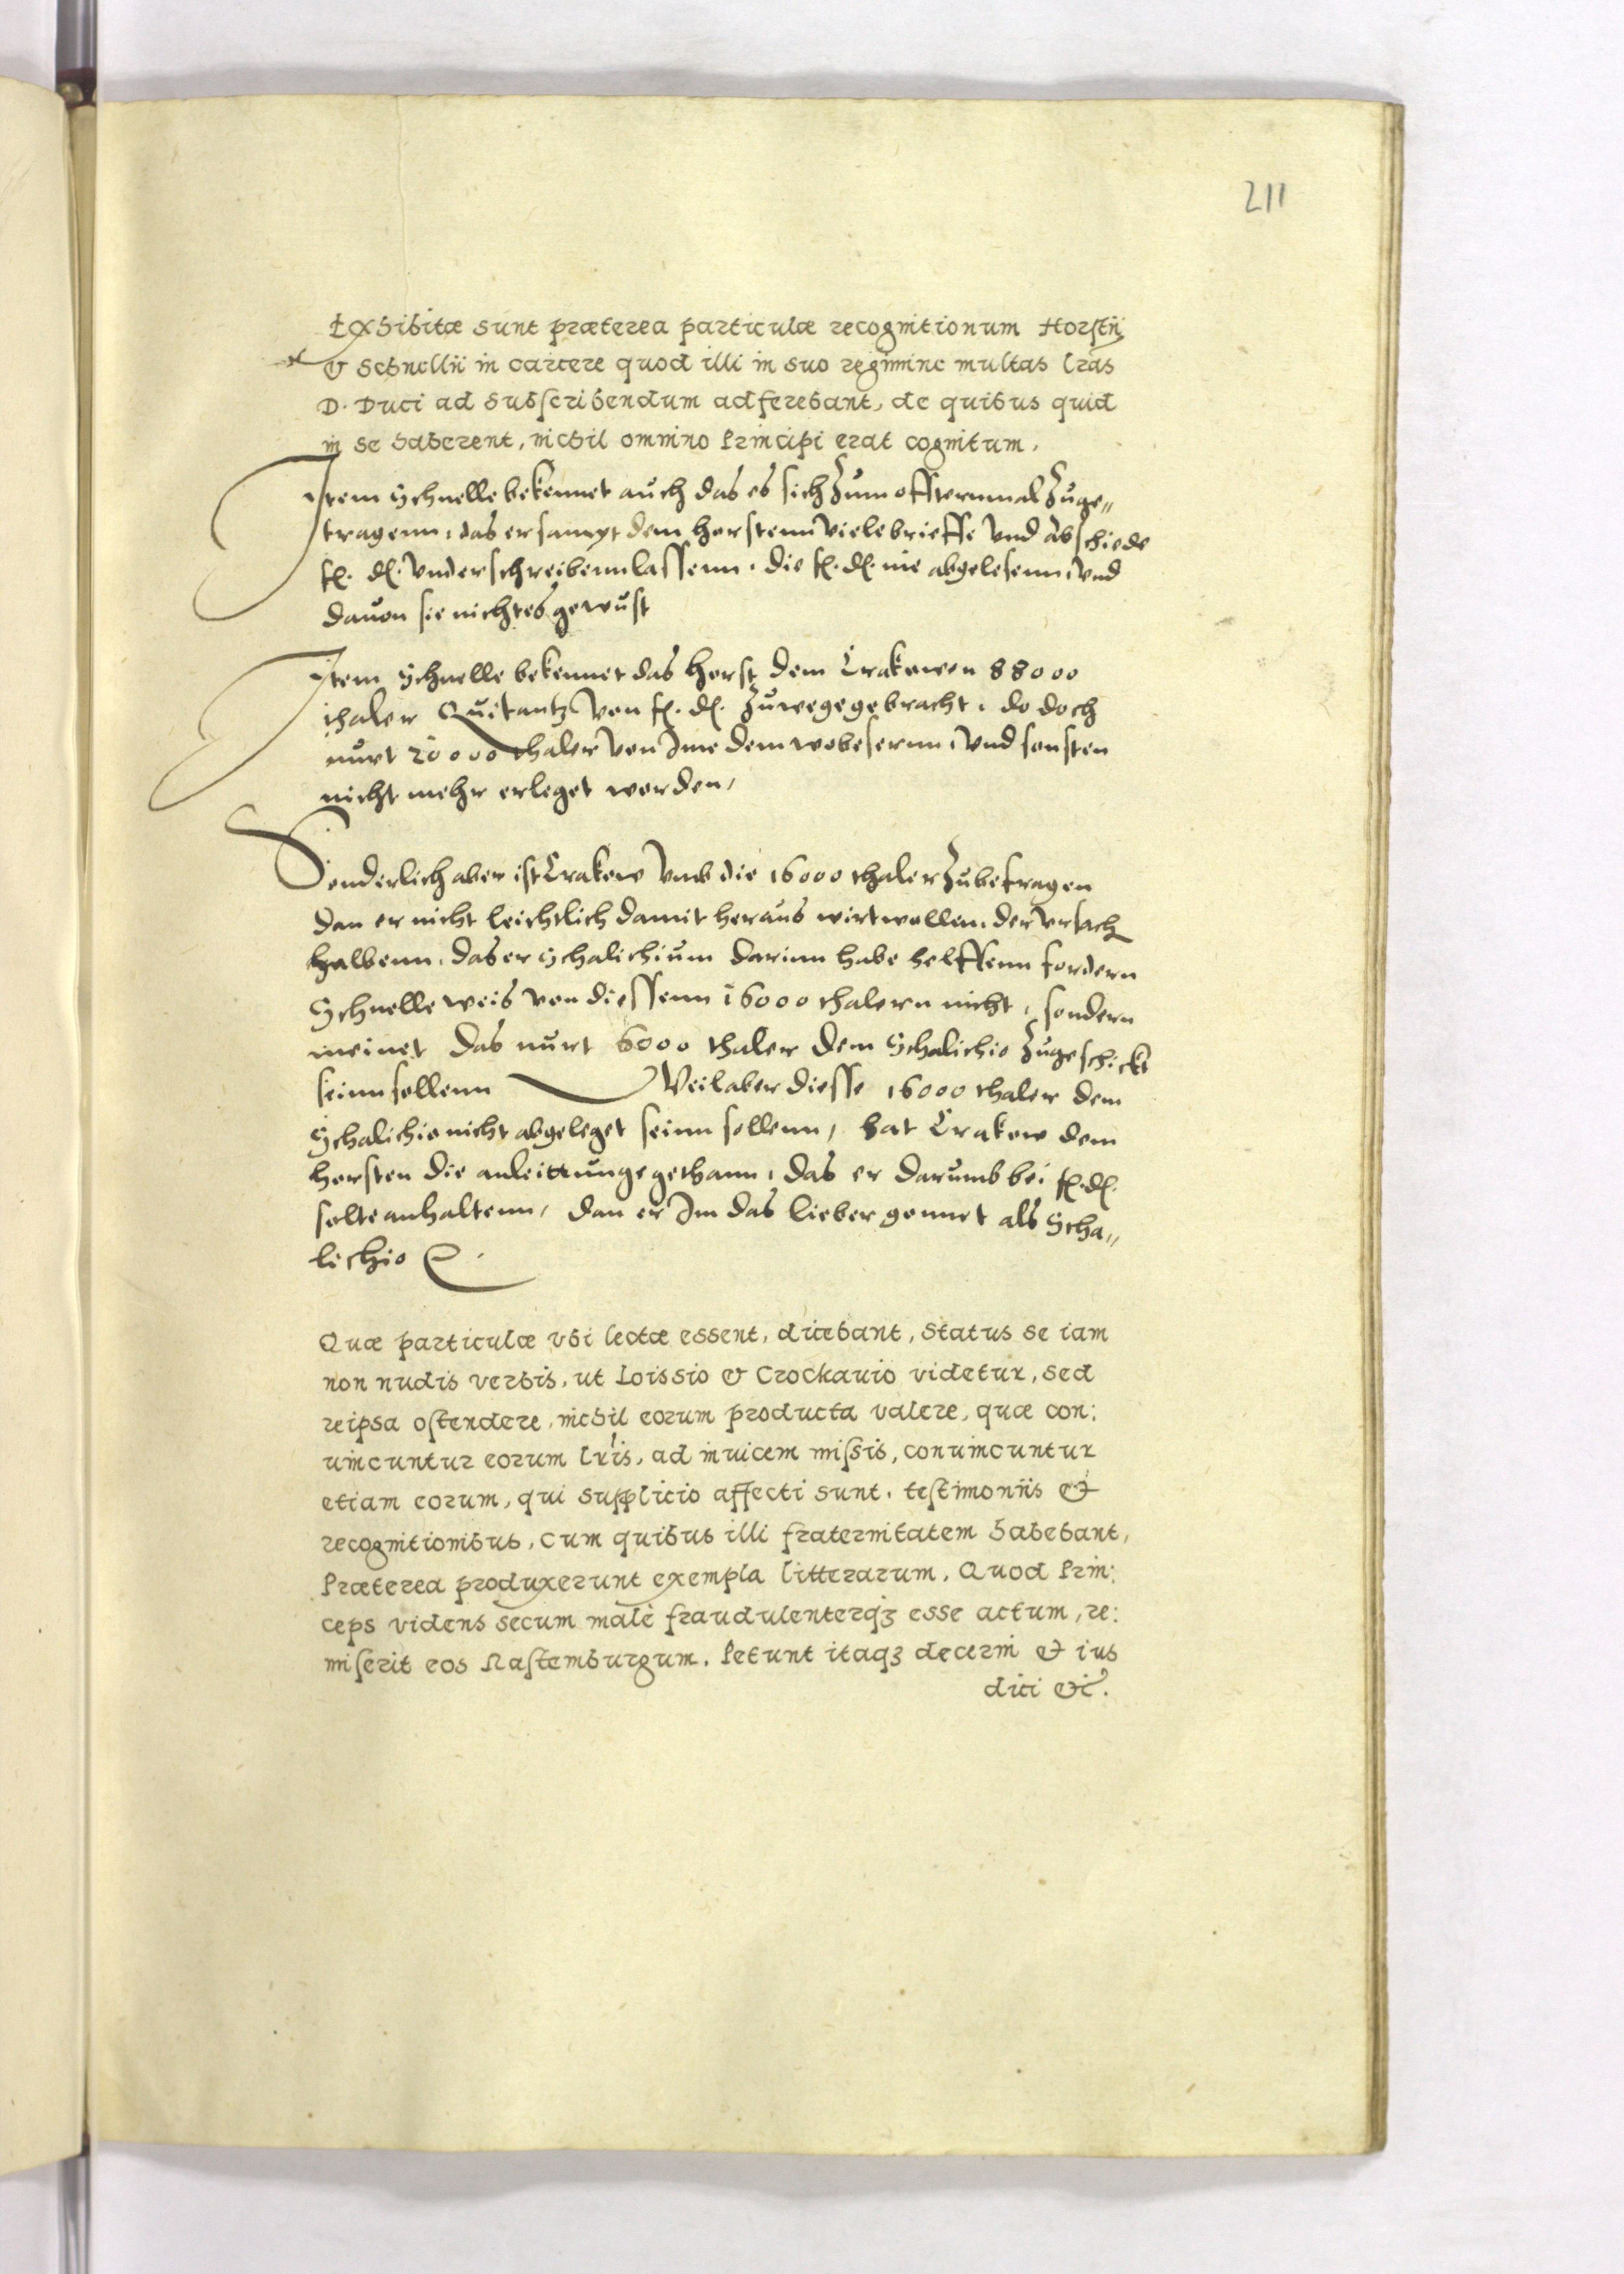 211
Exhibitæ sunt præterea particulæ recognitionum Horstij
& Schnellii in carcere quod illi in suo regimine multas lras
D. Duci ad subscribendum adferebant, de quibus quid
in se haberent, nichil omnino Principi erat cognitum.
Item Schnelle bekennet auch das es sich zum offternmal zuge„
tragenn, das er sampt dem Horstenn viele brieffe vnd abschiede
f. d. vnderschreibenn lassenn, die f. d. nie abgelesenn, vnd
dauon sie nichtes gewust
Item Schnelle bekennet das Horst dem Crakowen 88000
thaler Quitantz von f. d. zuwege gebracht, do doch
nurt 20000 thaler von Ime dem wobesernn, vnd sonsten
nicht mehr erleget worden,
Sonderlich aber ist Crakow vmb die 16000 thaler zubefragen
dan er nicht leichtlich damit heraus wirt wollen, der vrsach
halbenn, das er Schalichium darinn habe helffenn fordern
Schnelle weis von diessenn 16000 thalern nicht, sondern
meinet das nurt 6000 thaler dem Schalichio zugeschickt
seinn sollenn Weil aber diesse 16000 thaler dem
Schalichio nicht abgeleget seinn sollenn, hat Crakow dem
Horsten die anleittunge gethann, das er darumb bei f. d.
solte anhaltenn, dan er Im das lieber gonnet als Scha„
lichio &.
Quæ particulæ vbi lectæ essent, dicebant, status se iam
non nudis verbis, ut Loissio & Crockauio videtur, sed
reipsa ostendere, nichil eorum producta valere, quæ con:
uincuntur eorum lris, ad inuicem missis, conuincuntur
etiam eorum, qui supplicio affecti sunt, testimoniis &
recognitionibus, cum quibus illi fraternitatem habebant,
Præterea produxerunt exempla litterarum, Quod Prin:
ceps videns secum malè fraudulenterqʒ esse actum, re:
miserit eos Rastemburgum. Petunt itaqʒ decerni & ius
dici &c.